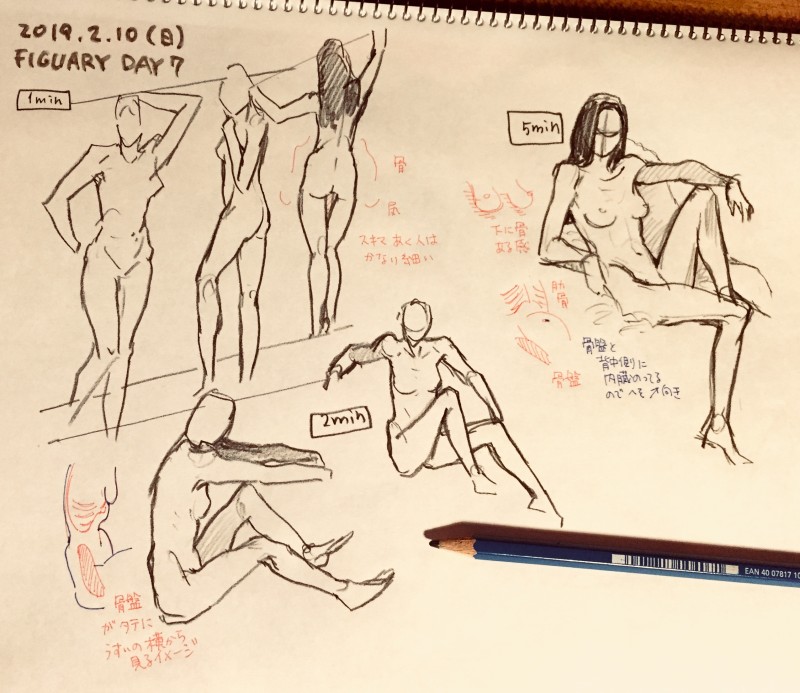 2019.2.10(日)
FIGUARY DAY 7
1min
5min
骨
尻
スキマ あく人は
かなり細い
下に骨
ある感
肋
骨
骨盤
骨盤と
背中側に
内臓のってる
のでへそ↗向き
2min
骨盤
がタテに
うすいの横から
見るイメージ
EAN 40 07817 10